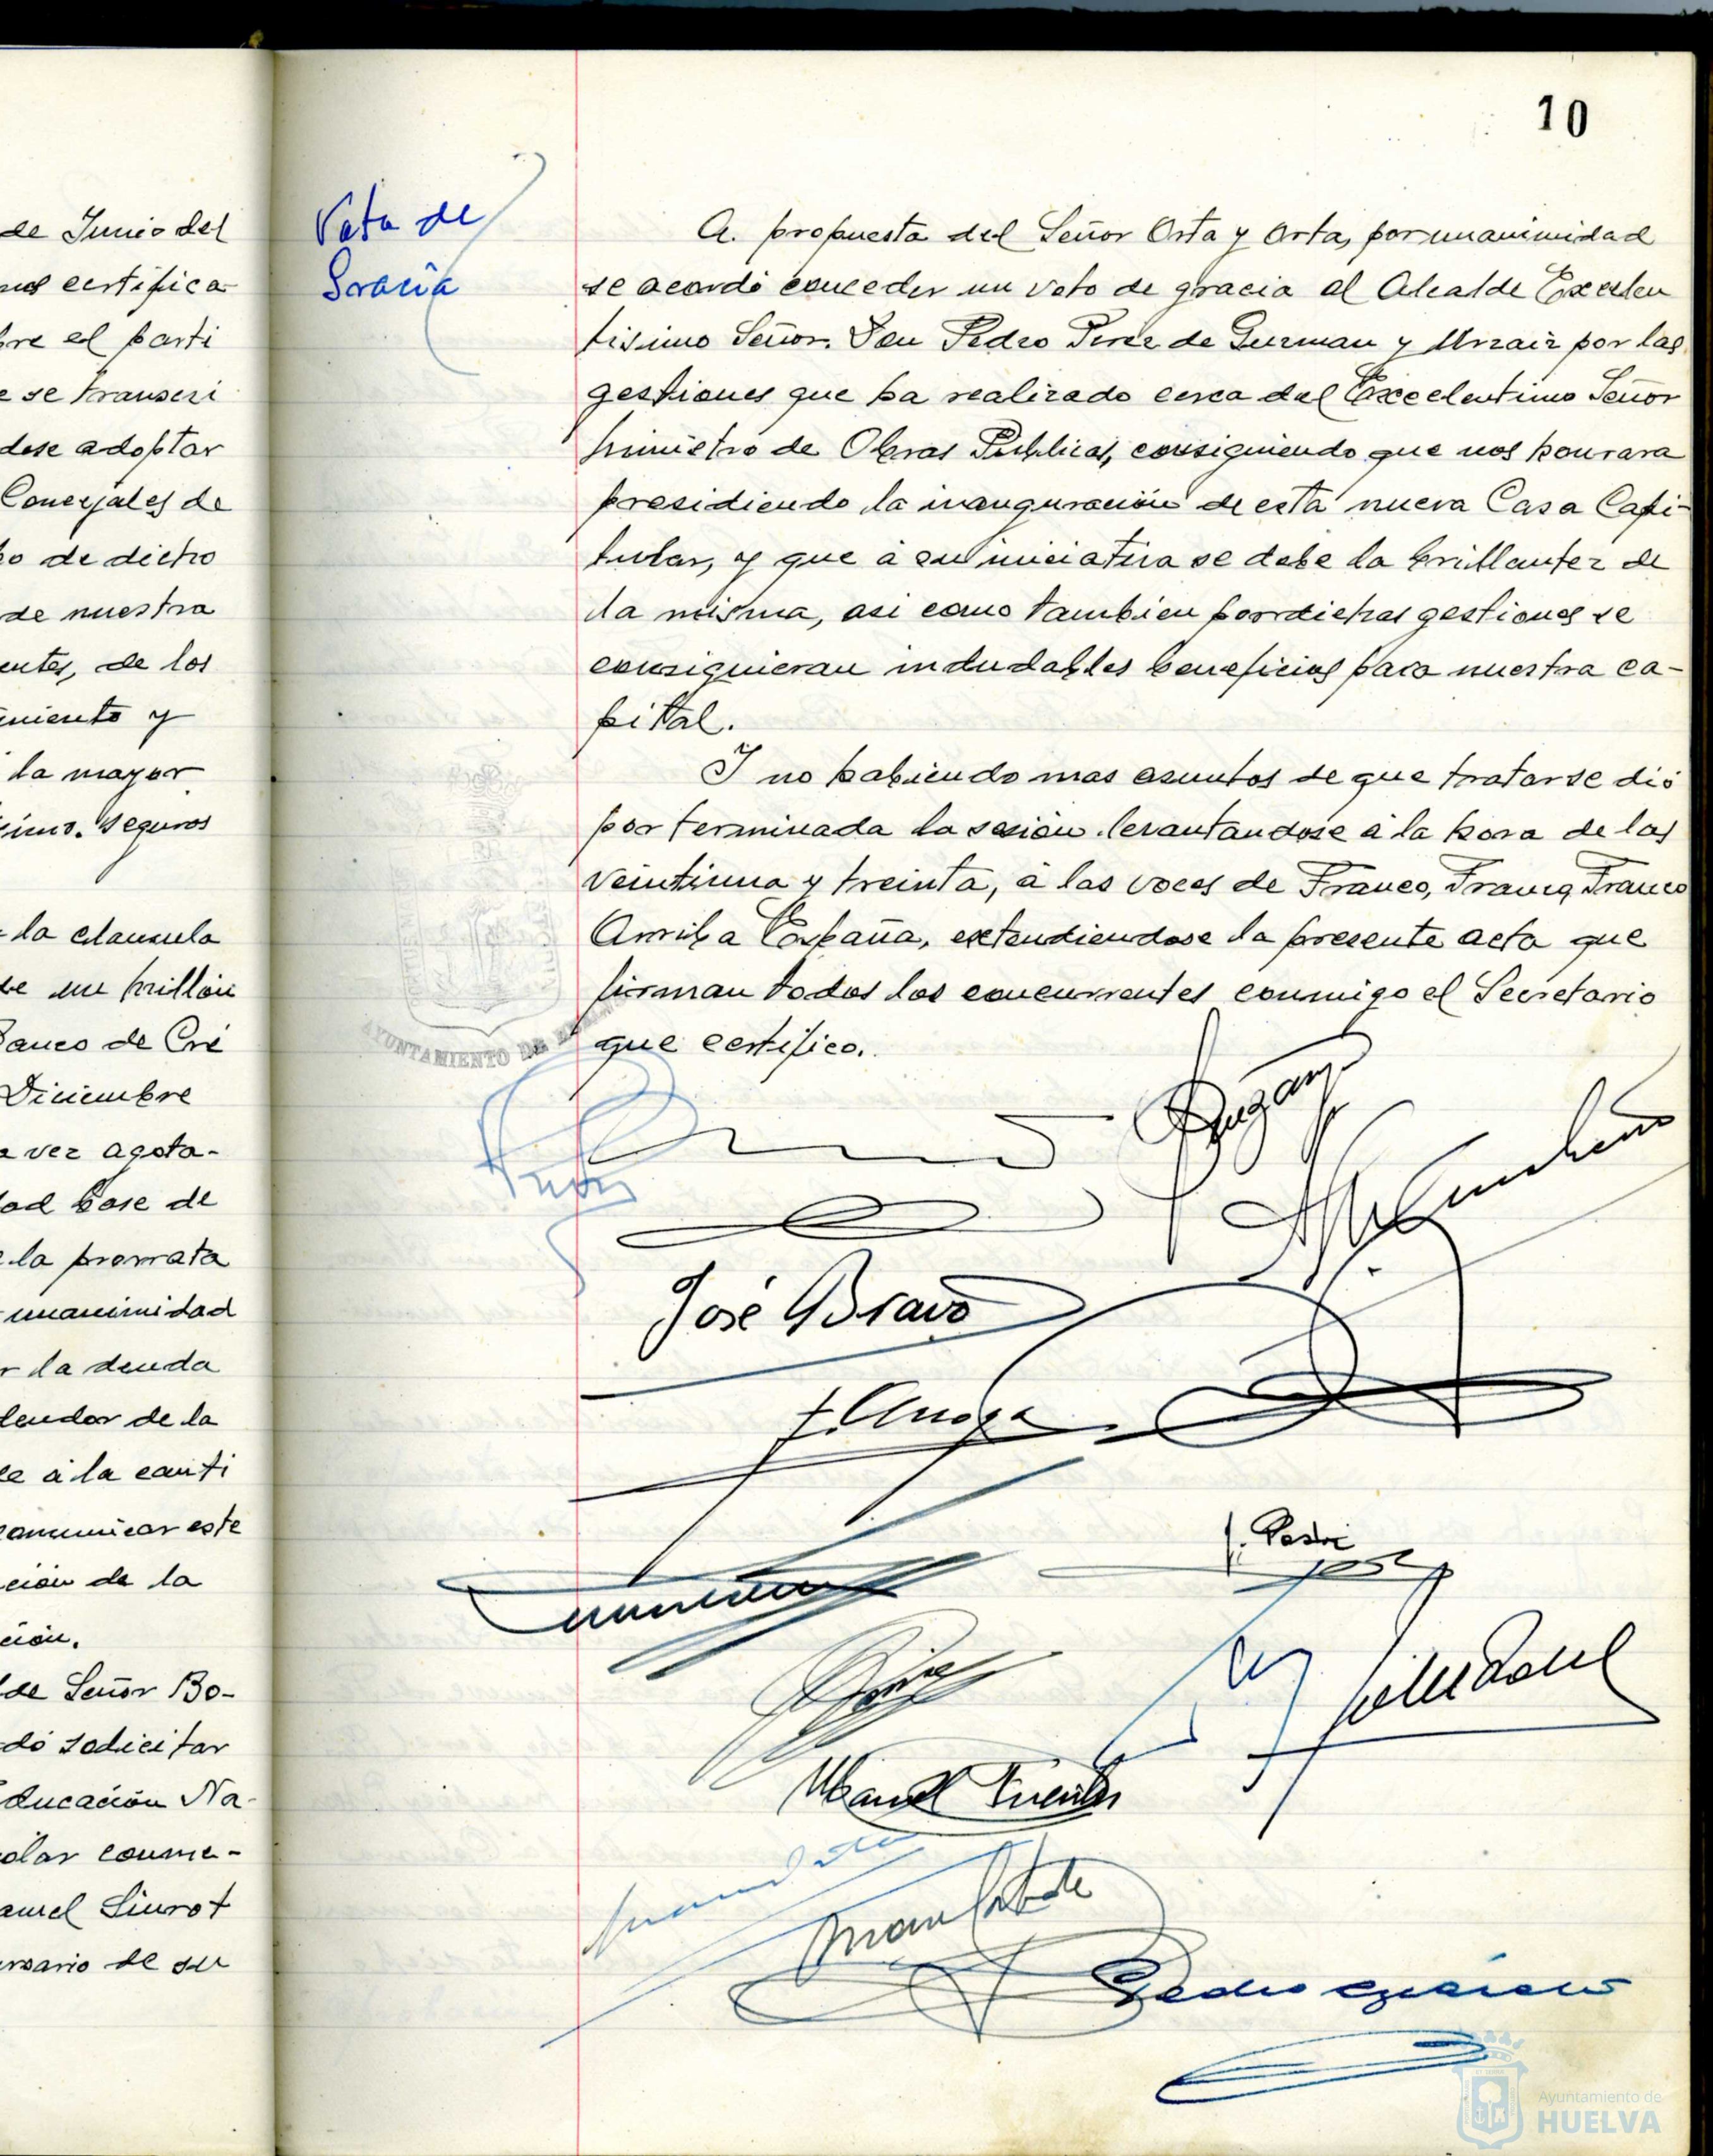 10
de Junio del
certifica
bre el parti
e se transcri
dose adoptar
Concejales de
o de dicho
de nuestra
entes, de los
imiento y
la mayor
simo. Seguros
la clausula
de un millón
Banco de Cré
Diciembre
a vez agota-
dad base de
la prorrata
unanimidad
r la deuda
dendor de la
le á la canti
comunicar este
ción de la
ción.
de Señor Bo-
dó solicitar
Educación Na-
olar conme-
anuel Siurot
ersario de su
Voto de
Gracia
A. propuesta del Señor Orta y Orta, por unanimidad
se acordó conceder un voto de gracia al Alcalde Excelen
tisimo Señor. Don Pedro Perez de Guzman y Urzaiz por las
gestiones que ha realizado cerca del Excelentimo Señor
Ministro de Obras Publicas, consiguiendo que nos honrara
presidiendo la inauguración de esta nueva Casa Capi-
tular, y que á su iniciativa se debe la brillantez de
la misma, asi como tambien por dichas gestiones se
consiguieran indudables beneficios para nuestra ca-
pital.
Y no habiendo mas asuntos de que tratar se dió
por terminada la sesión levantandose á la hora de las
veintiuna y treinta, á las voces de Franco, Franco, Franco
Arriba España, extendiendose la presente acta que
firman todos los concurrentes conmigo el Secretario
que certifico.
AYUNTAMIENTO DE
José Bravo
Manuel Fuentes
Ayuntamiento de
HUELVA